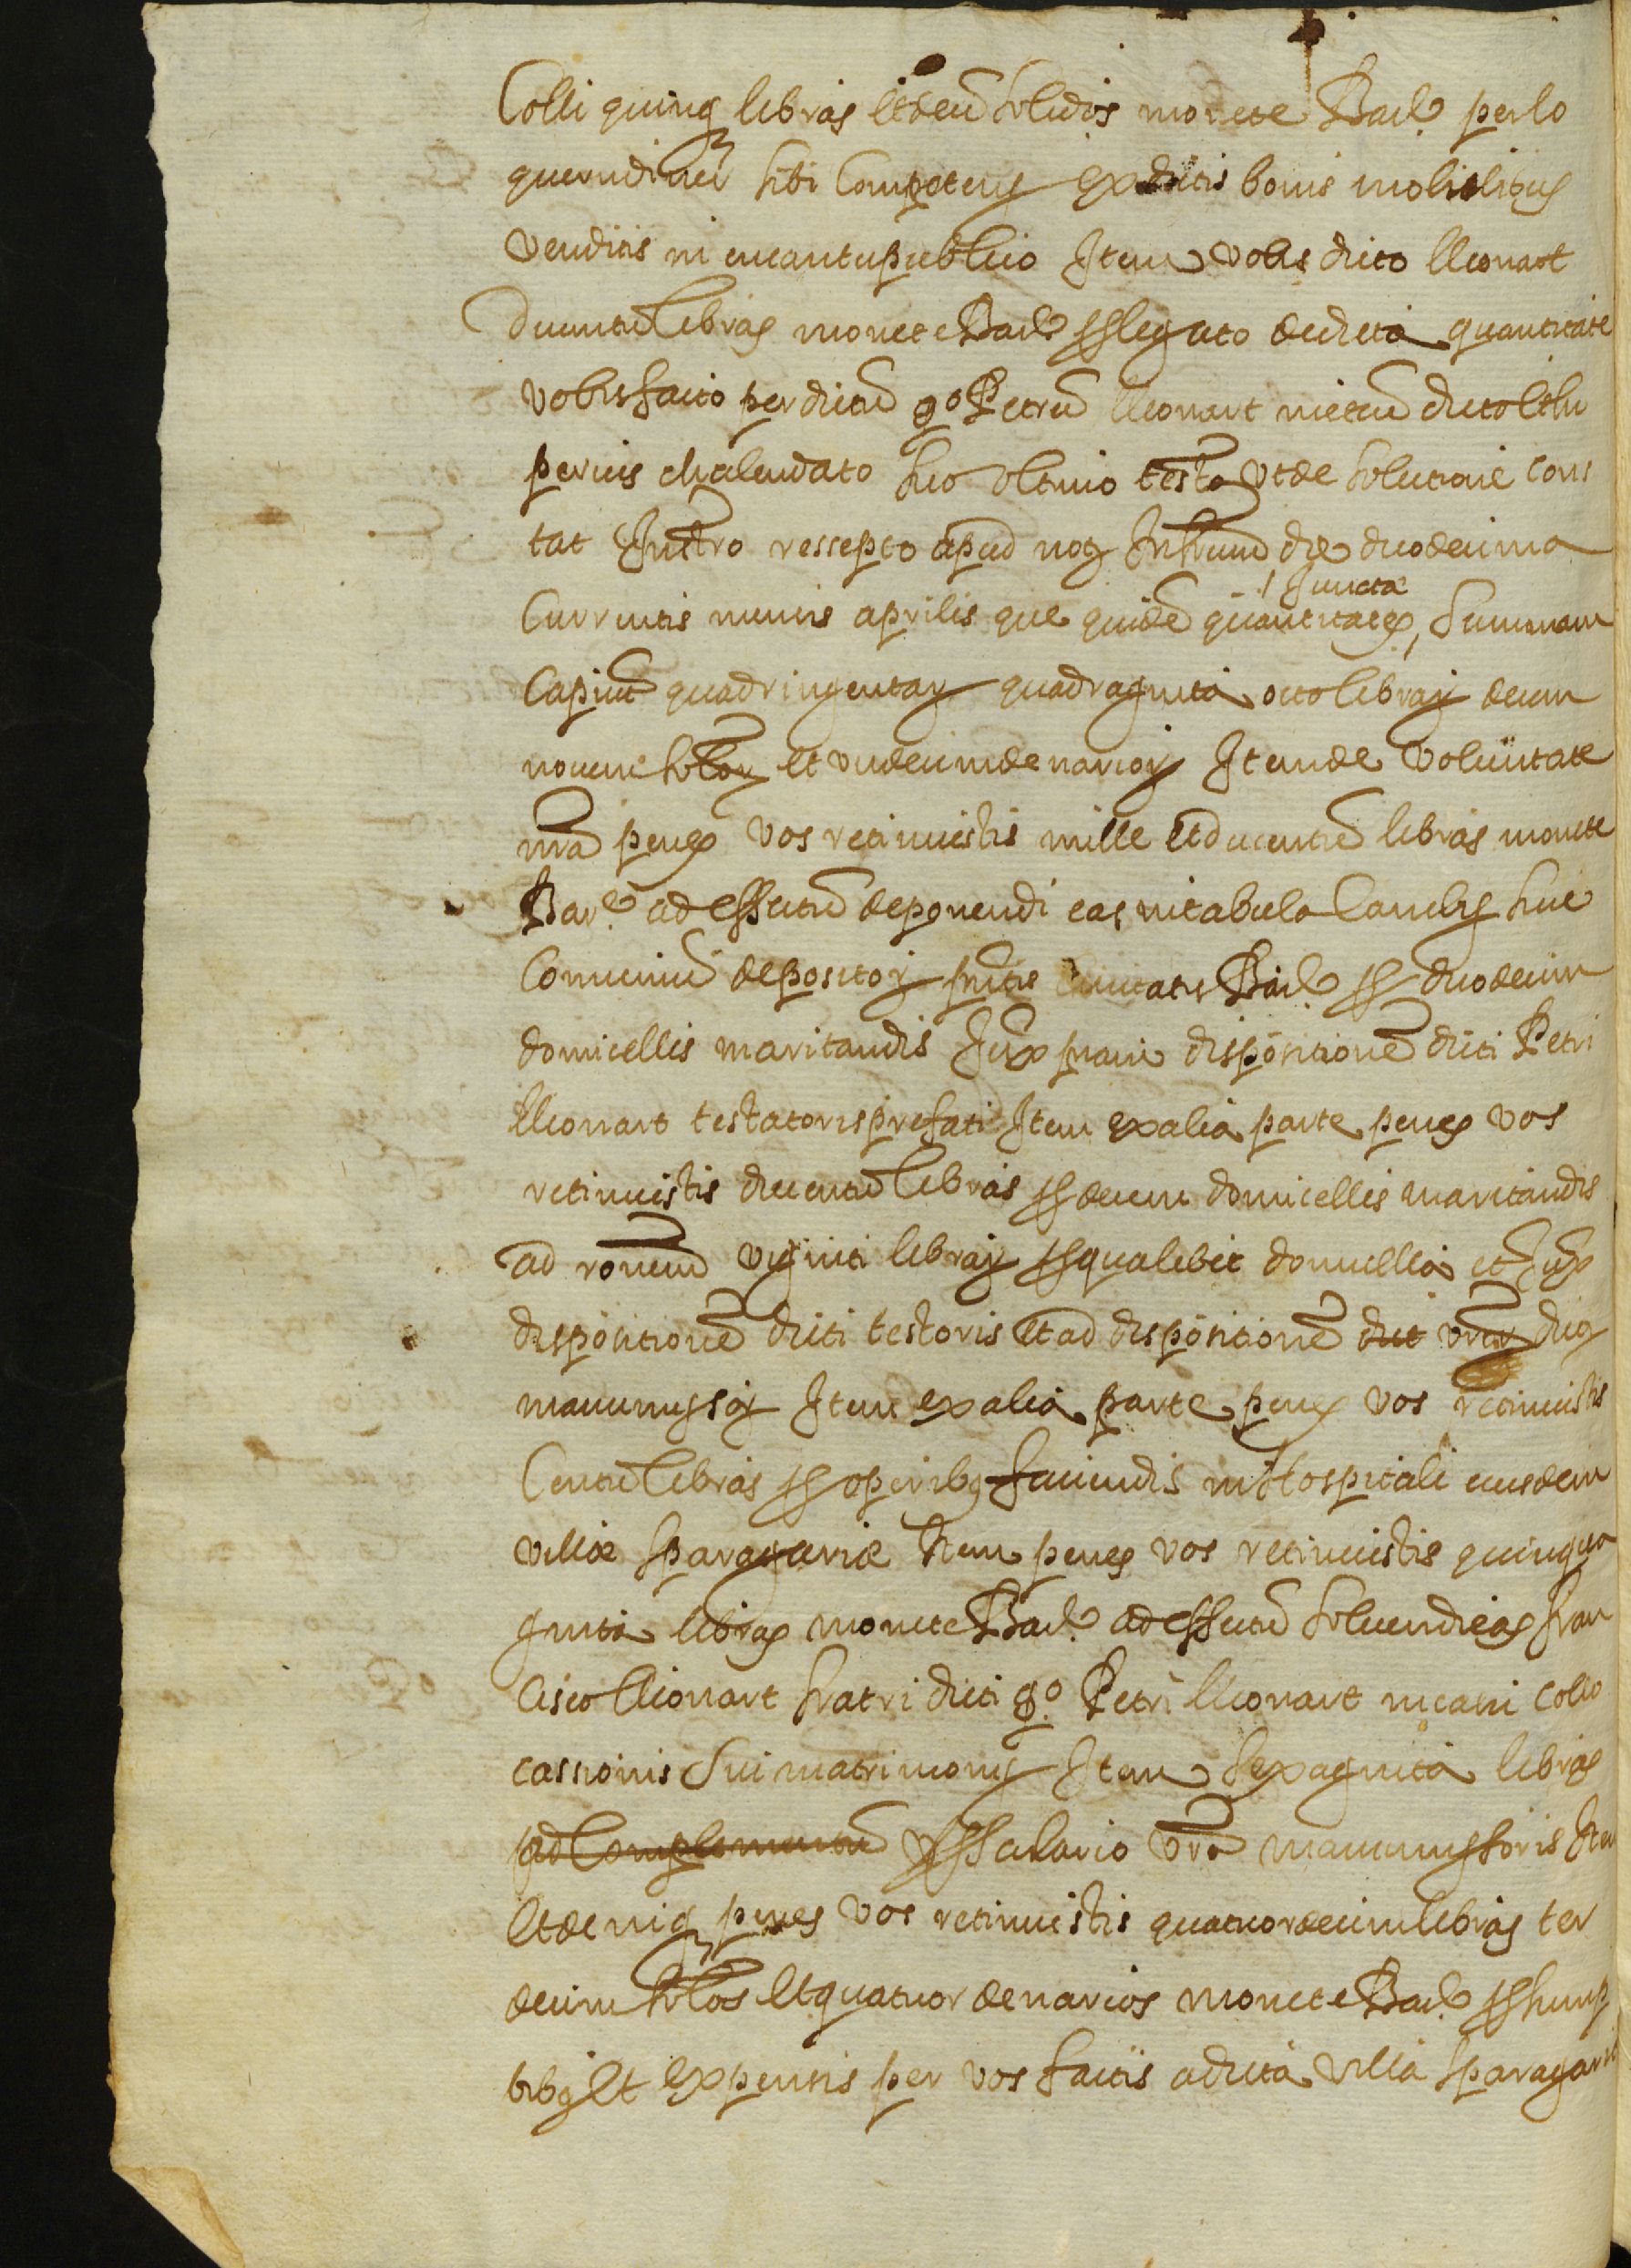 Colli quinq libras et decē solidos monete Barł per lo
quendinari sibi competens ex dictis bonis mobilibus
venditis in encantu publico Item vobis dicto lleonart
ducentū libras monete Barł pro legato de dicta quantitate
vobis facto per dictū qº Petrū lleonart
per eius chalendato suo ultimo testo ut de solutione cons
tat Instro ressepto apud nos Infrum die duodecima
Currentis mensis aprilis que quidē quantitates, / Juncta summam
Capiunt quadringentarȝ quadraginta octo librarȝ decem
novem solorȝ et undecim denariorȝ Item de voluntate
nrā penes vos retinuistis mille et ducentū libras monete
Barł ad effectū deponendi eas in tabula Cambij sive
Comuniū depositorȝ pntis Civitatis Barł pro duodecim
domicellis maritandis Juxª dispositionē dicti Petri
lleonart testatoris prefati Item ex alia parte penes vos
retinuistis ducentū libras pro decem domicellis maritandis
ad ronem viginti librarȝ pro qualibet domicella et Juxª
dispositionē dicti testoris et ad dispositionē dict vrm dicȝ
manumissorȝ Item ex alia parte penes vos retinuistis
Centū libras pro operibȝ faciendis in hospitali eiusdem
villæ sparagariæ Item penes vos retinuistis quinqua
ginta libras monete Barł ad effectū solvendi eas fran
cisco lleonart fratri dicti qº Petri lleonart in casu collo
cassionis sui matrimonij Item sexaginta libras
ad complementū pro salario vro manumissoris Item
et deniq penes vos retinuistis quatuordecim libras ter
decim solos et quatuor denarios monete Barł pro sump
tibȝ et expensis per vos factis a dicta villa sparagari